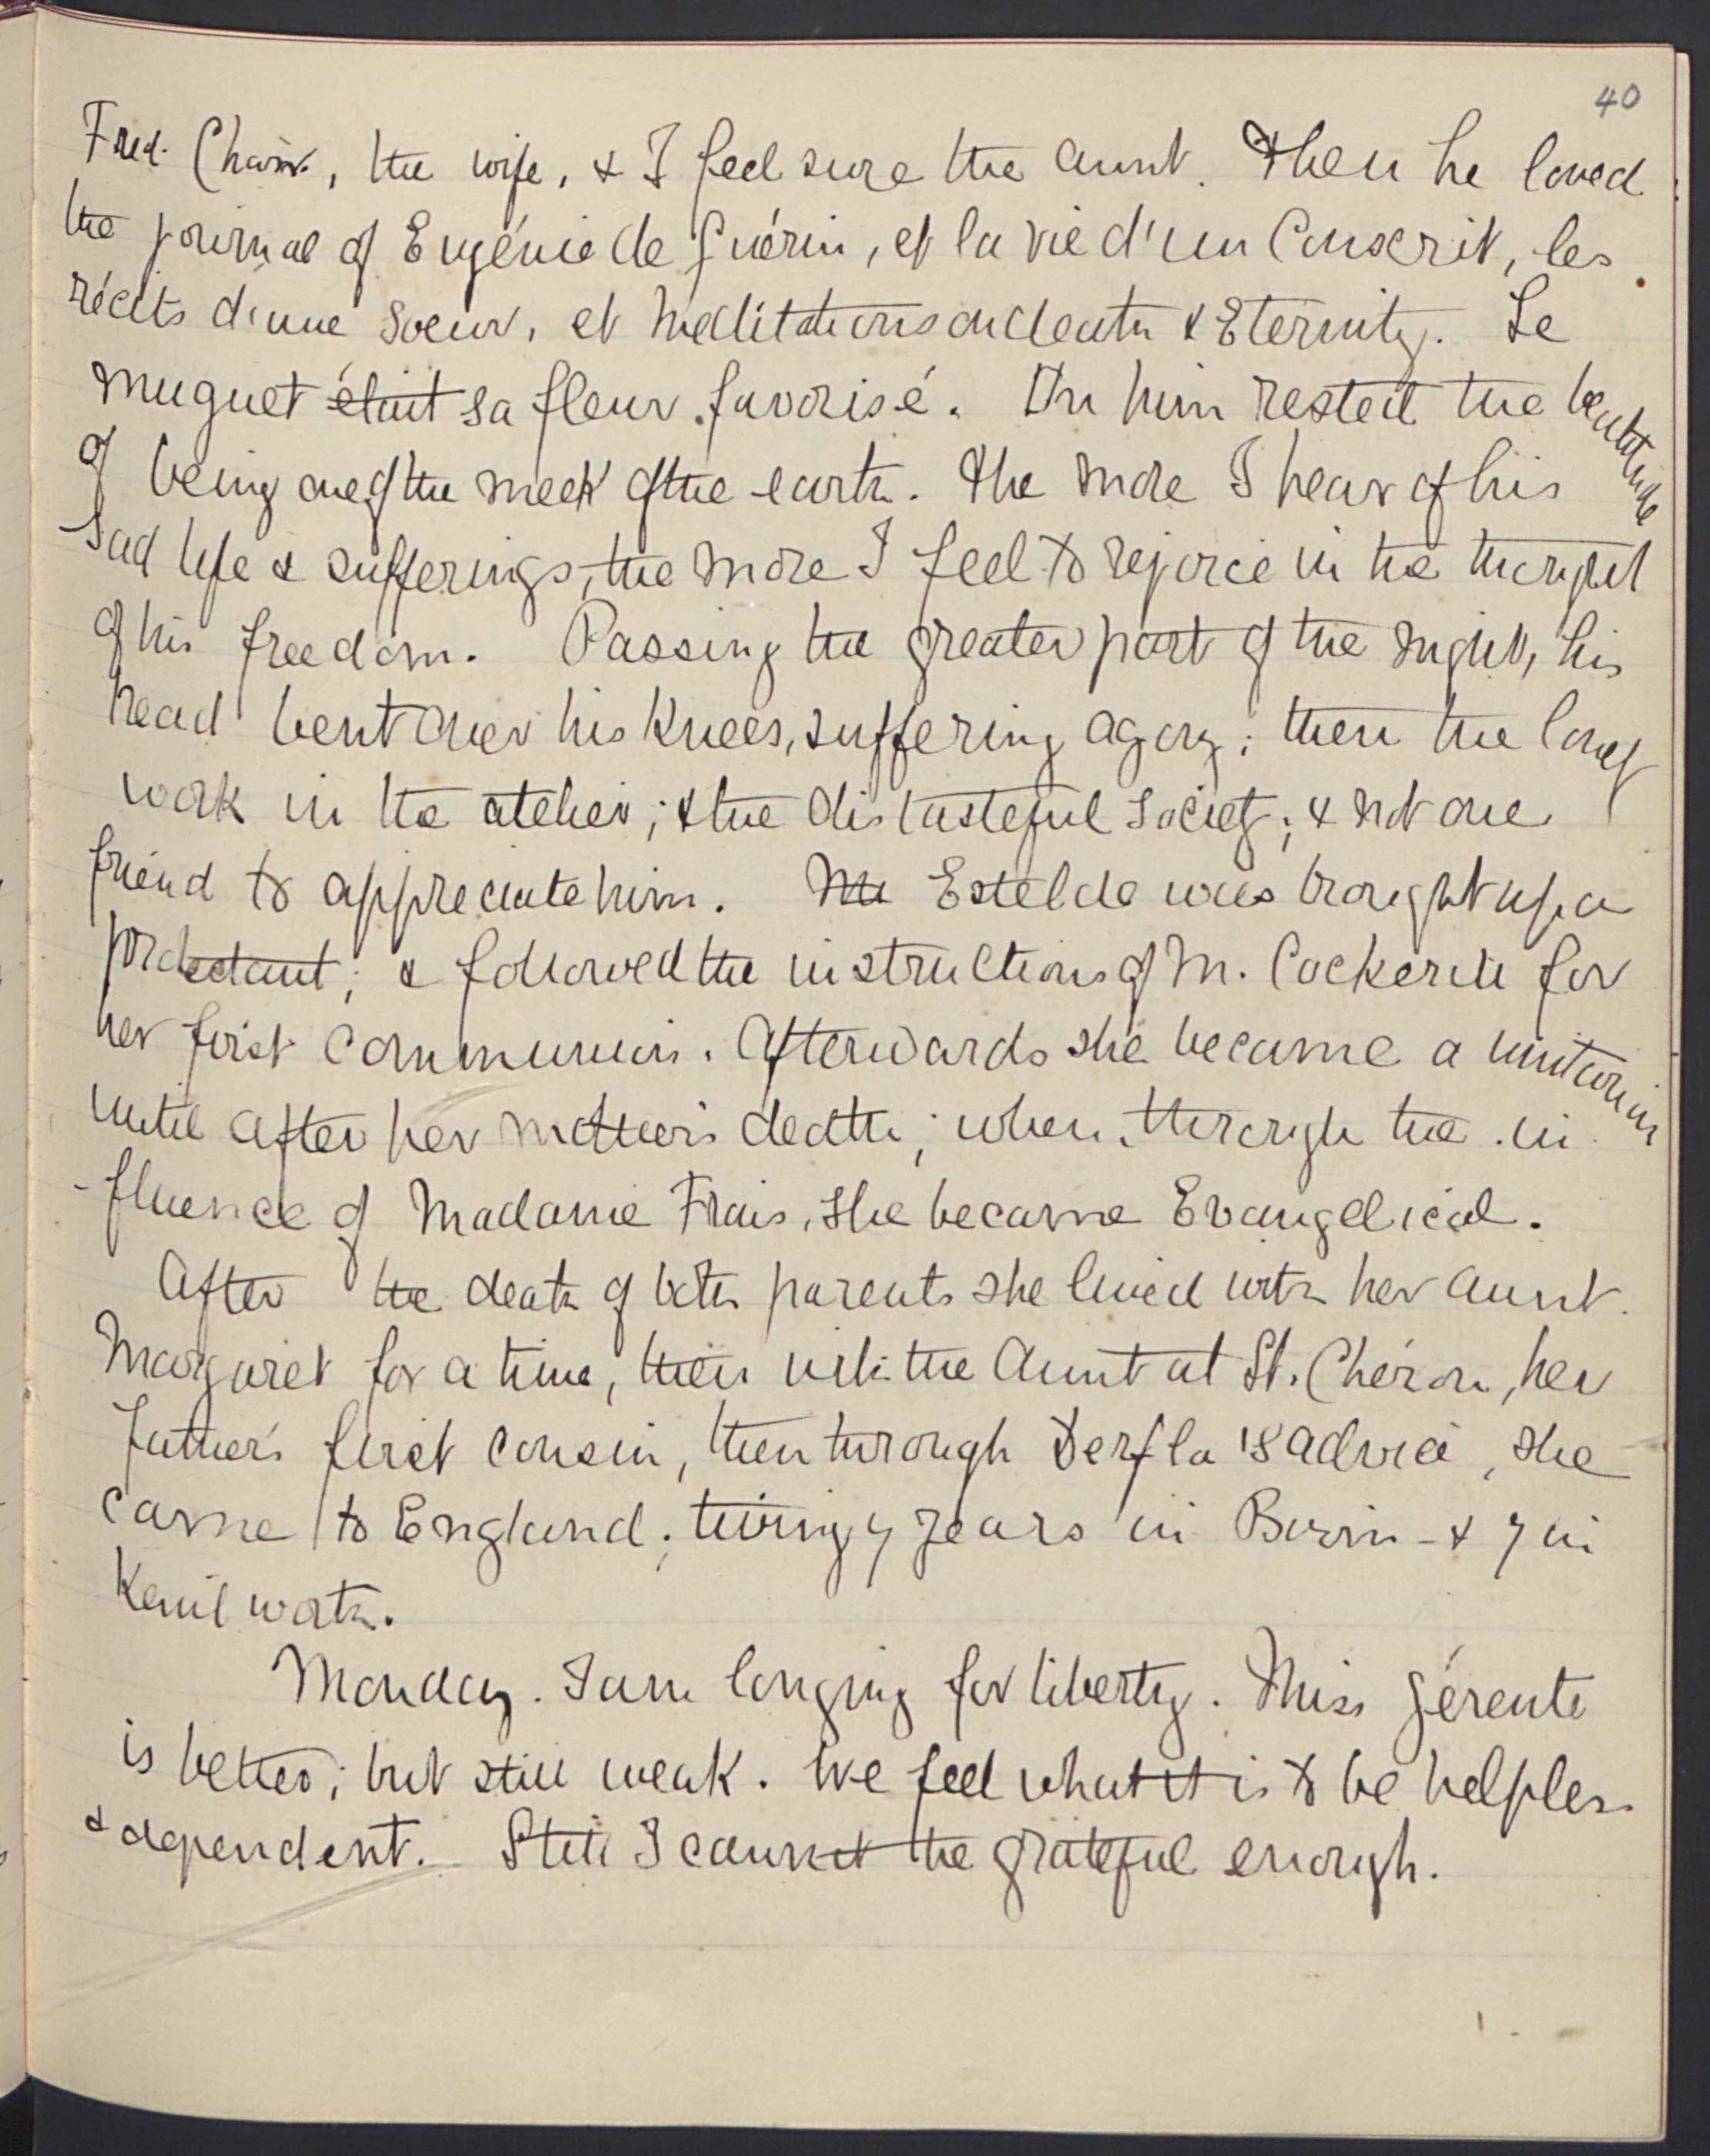 40
Fred. , the wife, & I feel sure the aunt. Then he loved
the journal of Eugénie de Guérin, et la vie d'un Conscrit, les
récits d'une Soeur, et Meditations on death & Eternity. Le
muguet était sa fleur favorisé. On him rested the beatitude
of being one of the meek of the earth. The more I hear of his
sad life & sufferings, the more I feel to rejoice in the thought
of his freedom. Passing the greater part of the night, his
head bent over his knees, suffering agony; then the long
work in the atelier; & the distasteful society; & not one
friend to appreciate him. Estelde was brought up a
protestant; & followed the instructions of M. Cockerill for
her first Communion. Afterwards she became a unitarian
until after her mother's death; when, through the in
-fluence of Madame Frais, she became Evangelical.
After the death of both parents she lived with her aunt
Margaret for a time, then with the Aunt at St. Chéron, her
father's first cousin, then through 's advice, she
came to England; living 7 years in Birm - & 7 in
Kenilworth.
Monday. I am longing for liberty. Miss Gérente
is better; but still weak. We feel what it is to be helpless
& dependent. Still I cannot be grateful enough.